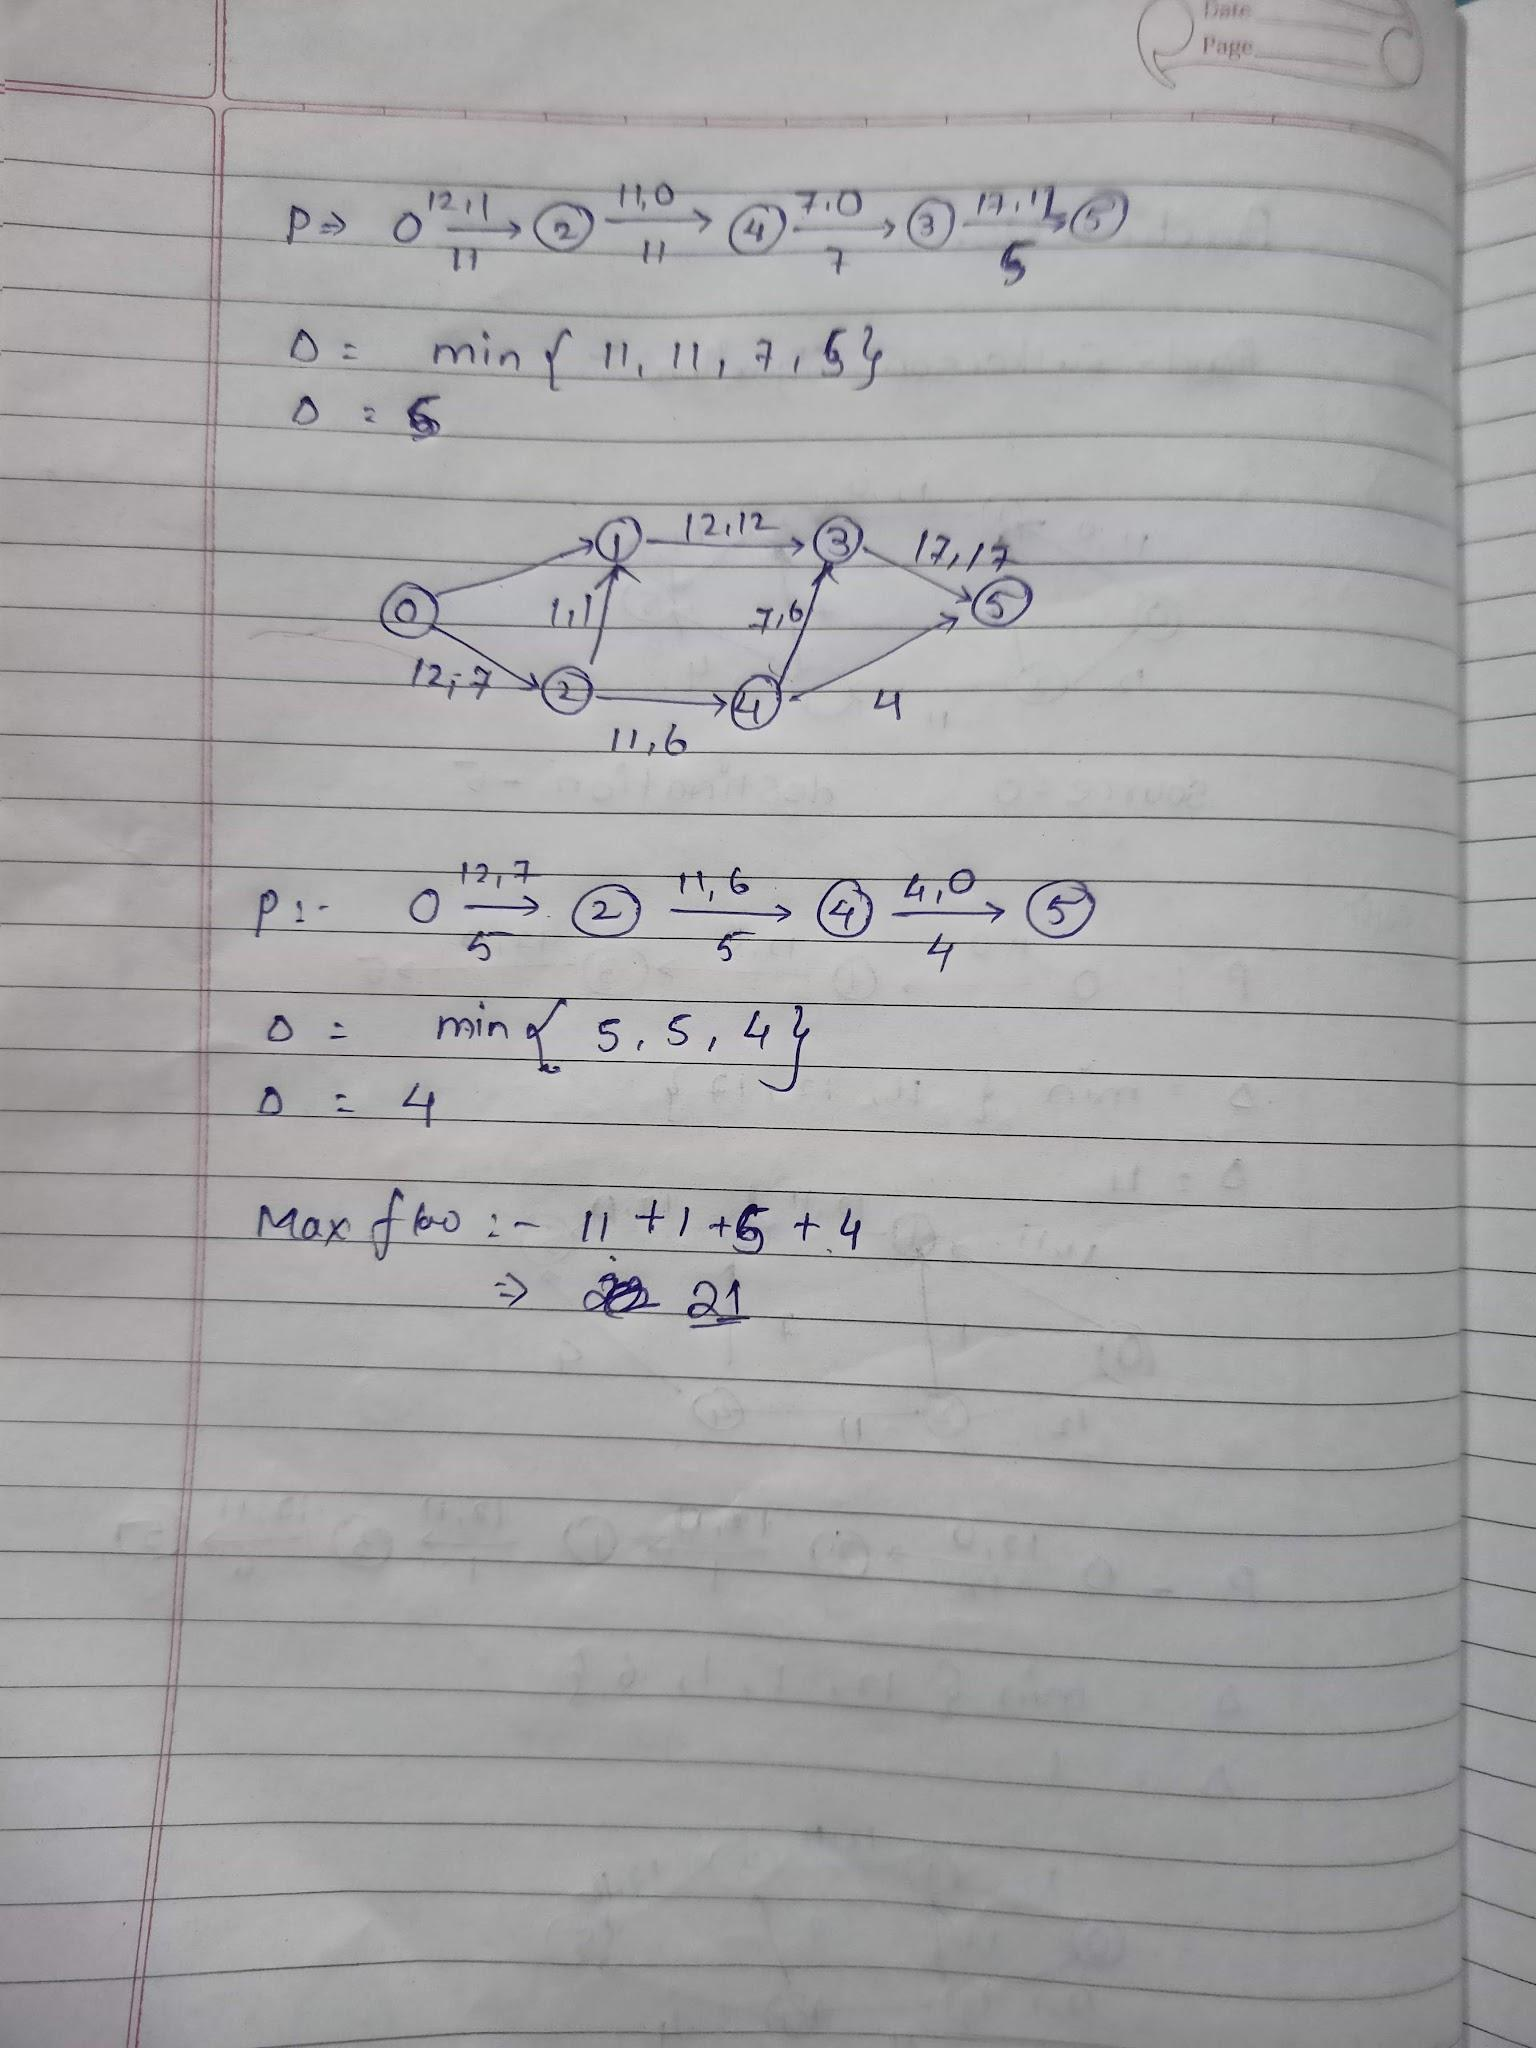 Date
Page
P ⇒ 0 12,11 → 2 11,0 → 4 7,0 → 3 17, → 5
11 11 7 5
Δ = min { 11, 11, 7, 5}
Δ = 5
1 12,12 3 17,17
0 1,1 7,6 5
12,7 2 4 4
11,6
P:- 0 12,7 → 2 11,6 → 4 4,0 → 5
5 5 4
Δ = min { 5, 5, 4}
Δ = 4
Max flow :- 11 + 1 + 5 + 4
⇒ 21